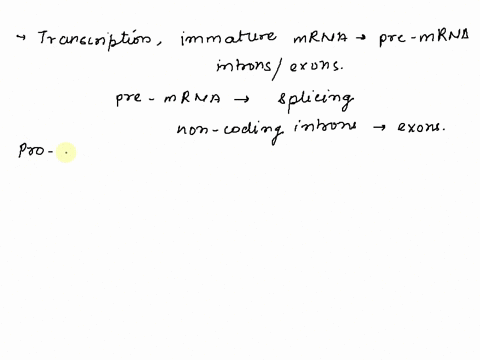 → Transcription, immature mRNA → pre-mRNA
introns/exons.
pre-mRNA → splicing
non-coding introns → exons.
Pro-